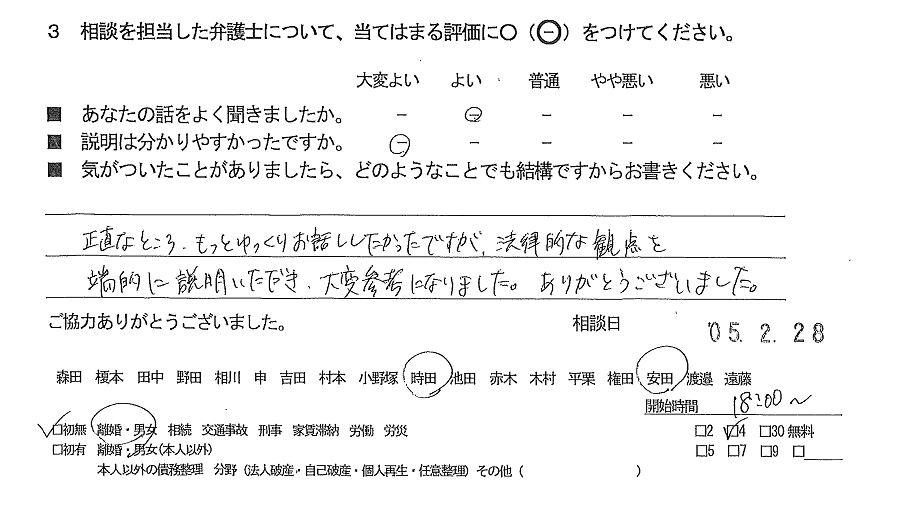 3 相談を担当した弁護士について、当てはまる評価に〇（㊀）をつけてください。
大変よい よい 普通 やや悪い 悪い
■ あなたの話をよく聞きましたか。 － － － － －
■ 説明は分かりやすかったですか。 － － － － －
■ 気がついたことがありましたら、どのようなことでも結構ですからお書きください。
正直なところ、もっとゆっくりお話ししたかったですが、法律的な観点を
端的に説明いただき、大変参考になりました。ありがとうございました。
ご協力ありがとうございました。 相談日 '05. 2. 28
森田 榎本 田中 野田 相川 申 吉田 村本 小野塚 時田 池田 赤木 木村 平栗 権田 安田 渡邉 遠藤
開始時間 18:00〜
☑初無 離婚・男女 相続 交通事故 刑事 家賃滞納 労働 労災 □2 ☑4 □30 無料
□初有 離婚・男女(本人以外) □5 □7 □9 □
本人以外の債務整理 分野（法人破産・自己破産・個人再生・任意整理）その他（ ）